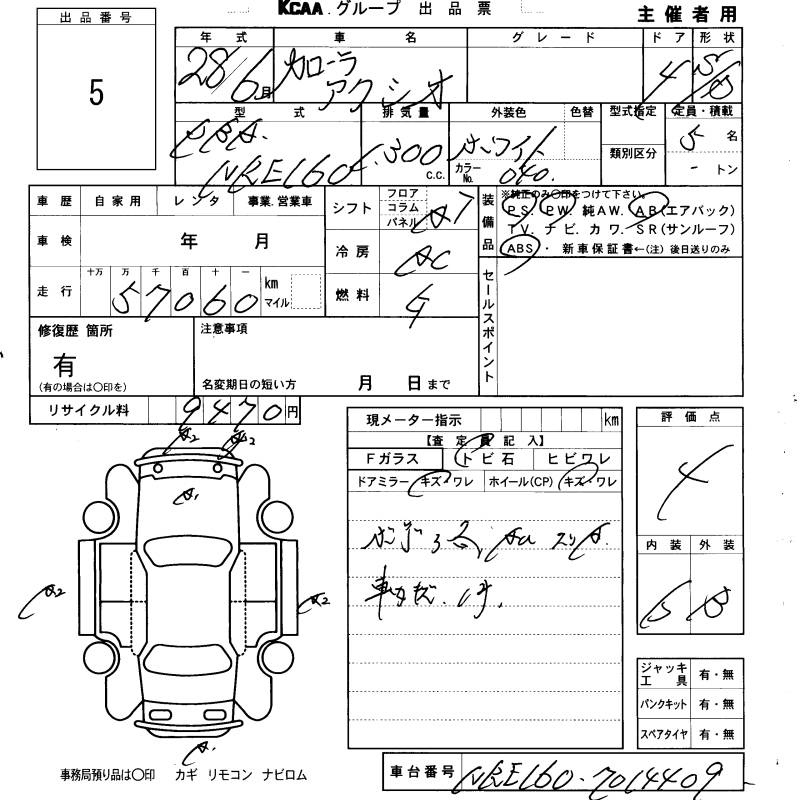 KCAA.グループ 出品票
主催者用
出品番号
5
年式 車名 グレード ドア 形状
28/6月 カローラ アクシオ 4
型式 排気量 外装色 色替 型式指定 定員・積載
NRE160 1300 c.c. ホワイト カラーNo. 040. 類別区分 5名
-トン
車歴 自家用 レンタ 事業.営業車 シフト フロア コラム パネル AT
装備品 ※純正のみ〇印をつけて下さい。
PS. PW. 純AW. AB(エアバック)
TV. ナビ. カワ. SR(サンルーフ)
ABS ・ 新車保証書←(注) 後日送りのみ
車検 年 月 冷房 AC
走行 十万 万 千 百 十 一 km マイル
57060
燃料 G
セールスポイント
修復歴 箇所 注意事項
有
(有の場合は〇印を) 名変期日の短い方 月 日まで
リサイクル料 9470円
現メーター指示 km
評価点
【査定員記入】
Fガラス トビ石 ヒビワレ
ドアミラー キズ・ワレ ホイール(CP) キズ・ワレ
4
内装 外装
B
A2 A2
A1
A2 A2
A1
ジャッキ工具 有・無
パンクキット 有・無
スペアタイヤ 有・無
事務局預り品は〇印 カギ リモコン ナビロム
車台番号 NRE160-7014409